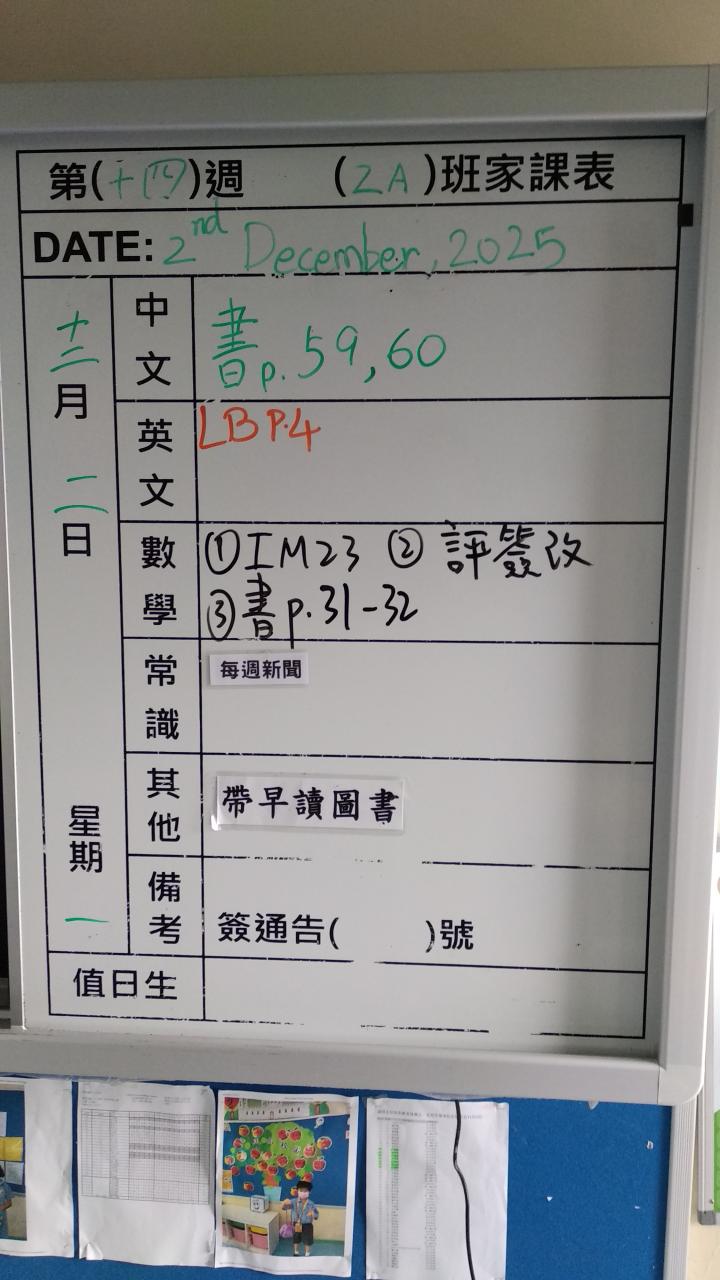 第(十四)週 (2A)班家課表
DATE: 2nd December, 2025
十二月二日 星期一
中文 書p.59,60
英文 LB P.4
數學 ①IM23 ②評簽改
③書p.31-32
常識 每週新聞
其他 帶早讀圖書
備考 簽通告( )號
值日生